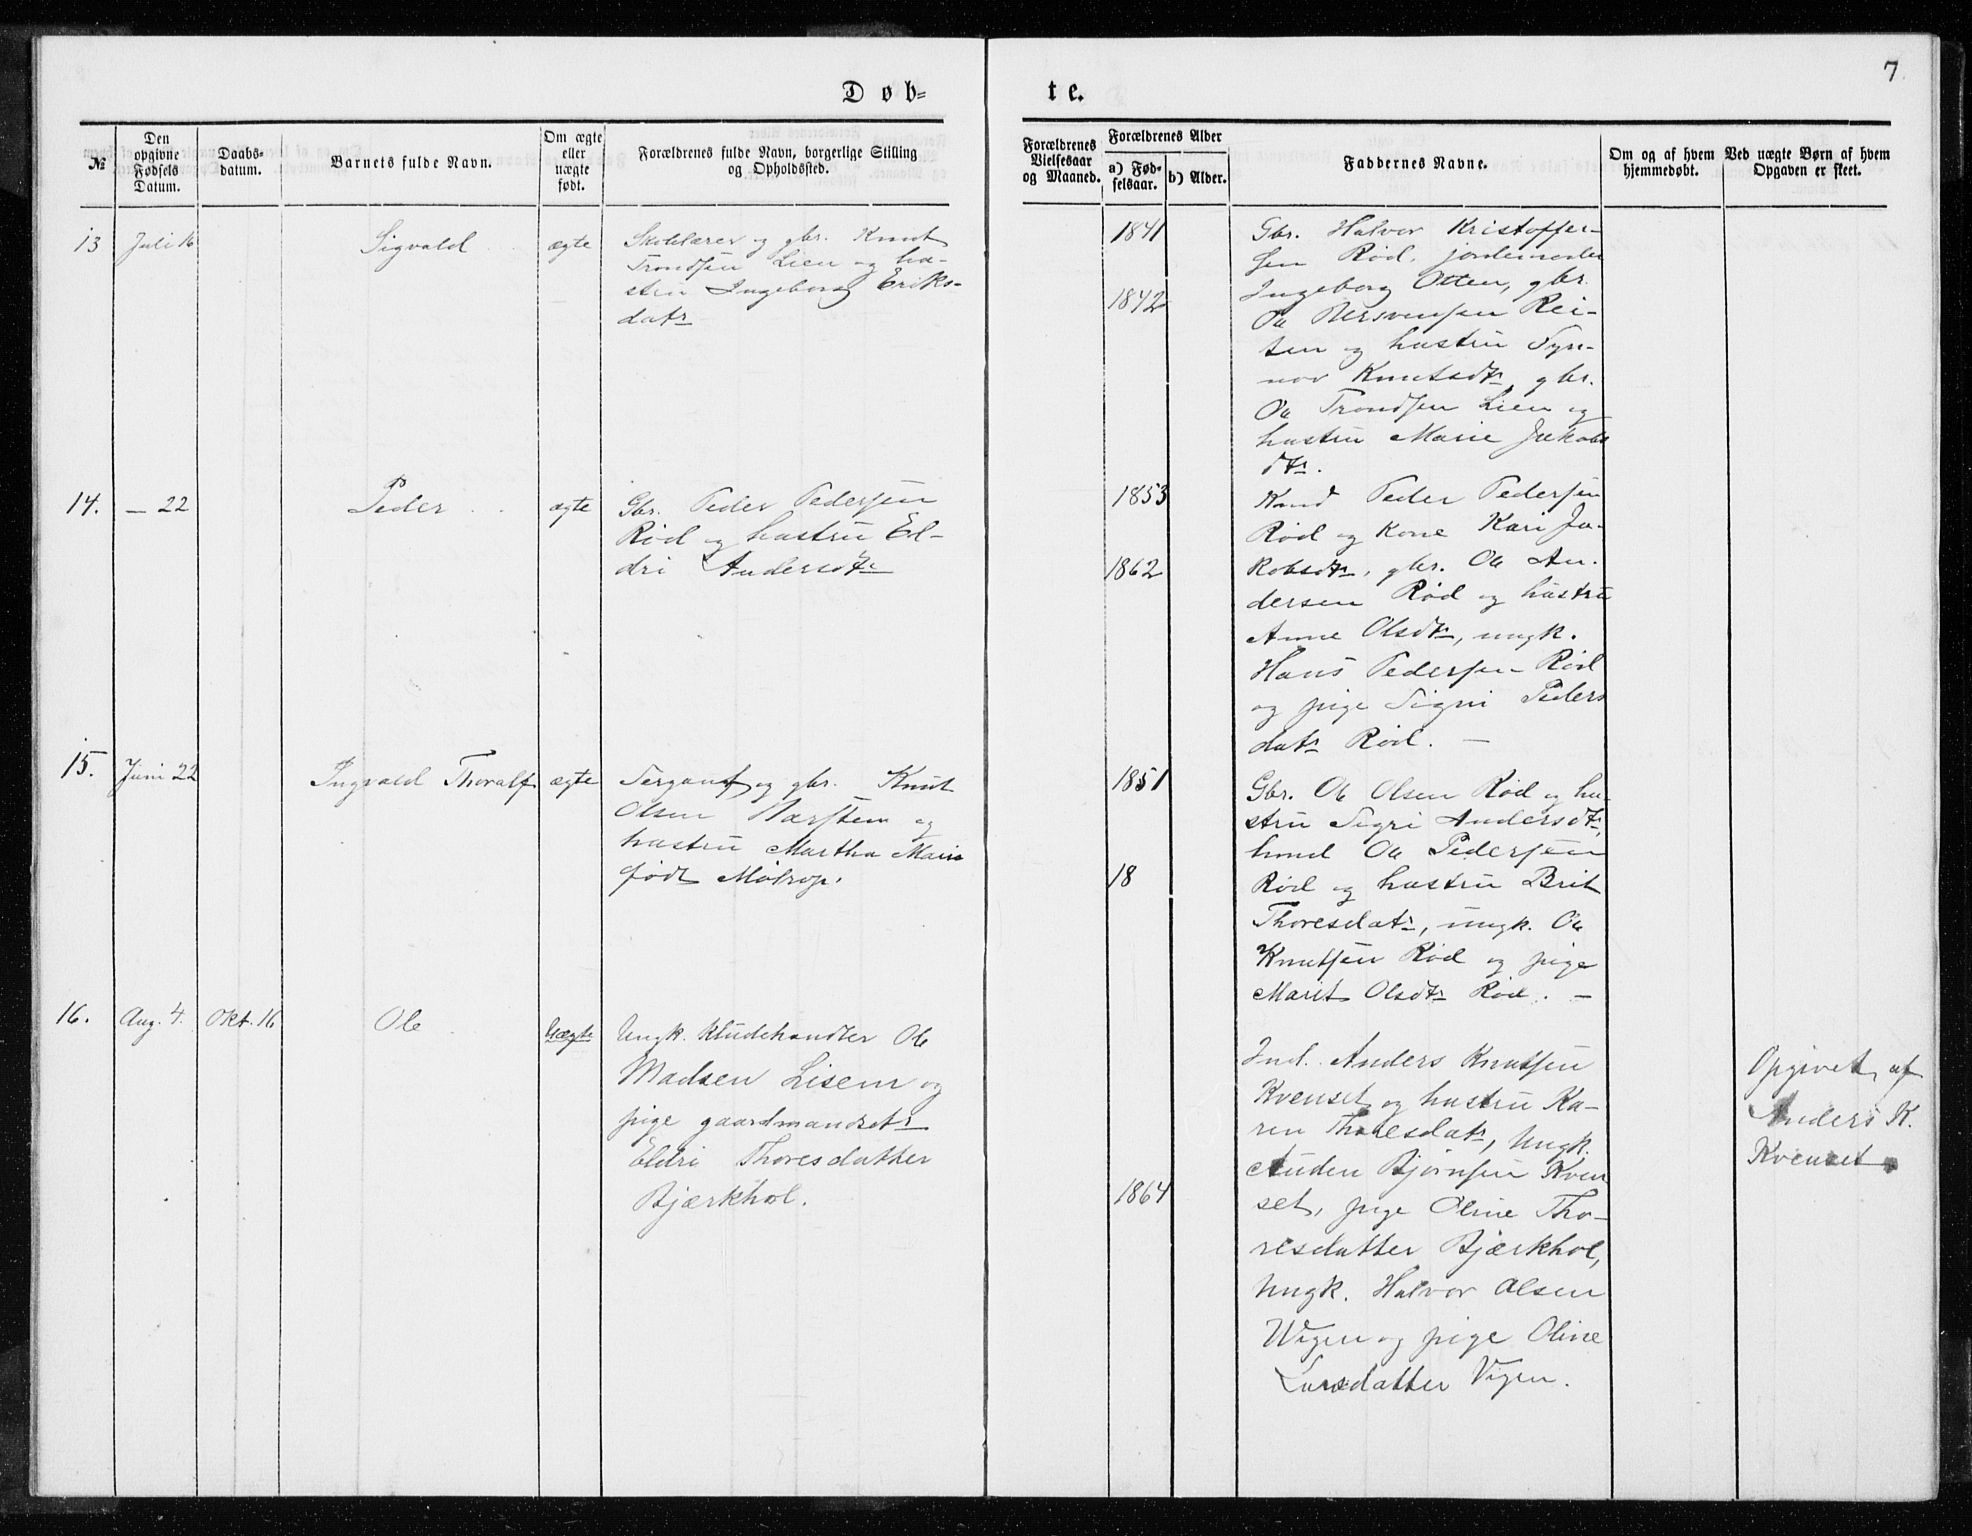 7
Døb=
te.
№
Den opgivne Fødsels Datum.
Daabs-datum.
Barnets fulde Navn.
Om ægte eller uægte født.
Forældrenes fulde Navn, borgerlige Stilling og Opholdssted.
Forældrenes Vielsesaar og Maaned.
Forældrenes Alder
a) Fød-selsaar.
b) Alder.
Faddernes Navne.
Om og af hvem hjemmedøbt.
Ved uægte Børn af hvem Opgaven er skeet.
13 Juli 16 Sigvald ægte
Skolelærer og gbr. Knut
Trondsen Lien og hu-
stru Ingeborg Eriks-
datr
1841
1842
Gbr. Halvor Kristoffer-
sen Rød, jordemoder
Ingeborg Otten, gbr.
Ole Bersvensen Rei-
ten og hustru Syn-
nov Knutsdtr, gbr.
Ole Trondsen Lien og
hustru Marie Jakobs
dtr.
14. — 22 Peder ægte
Gbr. Peder Pedersen
Rød og hustru El-
dri Andersdtr
1853
1862
Kaad Peder Pedersen
Rød og kone Kari Ja-
kobsdtr, gbr. Ole An-
dersen Rød og hustru
Anne Olsdtr, ungk.
Hans Pedersen Rød
og pige Sigri Peders
datr Rød. —
15. Juni 22 Ingvald Thoralf ægte
Sergant og gbr. Knut
Olsen Harstein og
hustru Martha Marie
født Motrop.
1851
18
Gbr. Ole Olsen Rød og hu-
stru Sigri Andersdtr,
Ole Pedersen
Rød og hustru Brit
Thoresdatr, ungk. Ole
Knutsen Rød og pige
Marit Olsdtr Rød. —
16. Aug. 4. Okt. 16 Ole Uægte
Ungk. Kludehandler Ole
Madsen Lisem og
pige gaardmandsdtr
Eldri Thoresdatter
Bjærkhol.
1864
Ind. Anders Knutsen
Kvenset og hustru Ka-
ren Thoresdatr, Ungk.
Auden Bjørnsen Kven
set, pige Oline Tho-
resdatter Bjærkhol,
Ungk. Halvor Olsen
Wigen og pige Oline
Larsdatter Vigen.
Opgivet af
Anders K.
Kvenset